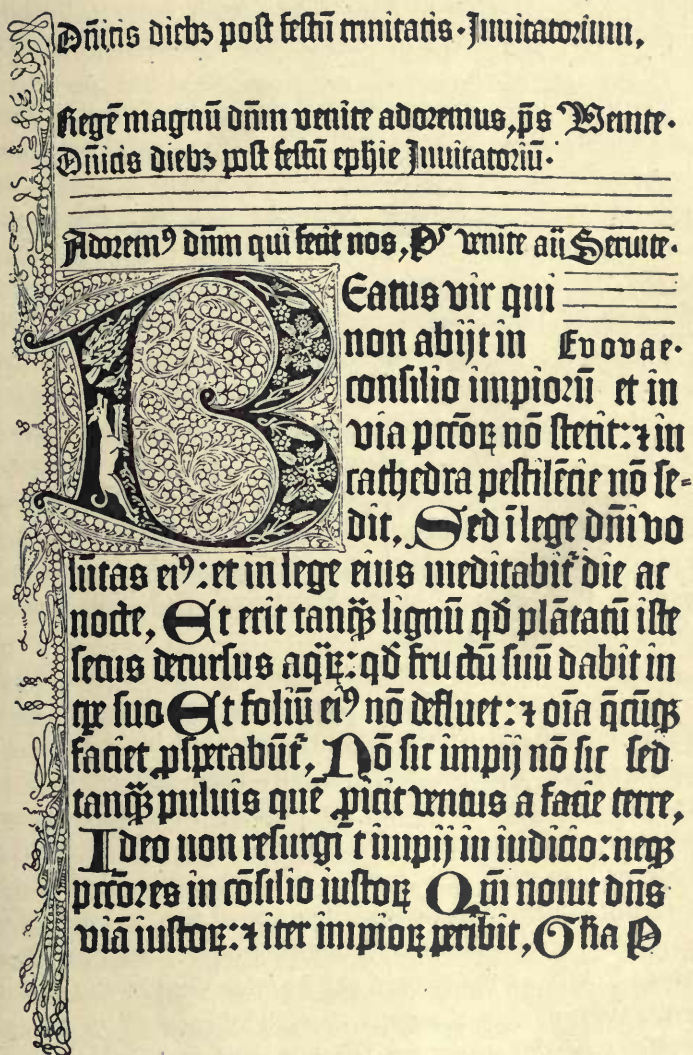 Dñicis diebꝫ post festū trinitatis · Inuitatorium,
Regē magnū dñm venite adoremus, p̄s Venite.
Dñicis diebꝫ post festū ephie Inuitatoriū.
Adoremꝰ dñm qui fecit nos, Ps̄ venite añ Seruite.
Beatus vir qui
non abijt in Evovae.
consilio impioꝝū et in
via pctōꝝ nō stetit: ⁊ in
cathedra pestilētie nō se-
dit, Sed ī lege dñi vo
lūtas eiꝰ: et in lege eius meditabit̄ die ac
nocte, Et erit tanq̄ꝫ lignū qd̄ plātatū iste
secus decursus aq̄ꝝ: qd̄ fructū suū dabit in
tp̄e suo Et foliū eiꝰ nō defluet: ⁊ oīa q̄cūqꝫ
faciet ꝓsperabūt̄, Nō sic impij nō sic sed
tanq̄ꝫ puluis quē ꝓicit ventus a facie terre,
Ideo non resurgī t impij in iudicio: neqꝫ
pctōres in cōsilio iustoꝝ Qm̄ nouit dñs
viā iustoꝝ: ⁊ iter impioꝝ peribit, Gl̄ia P